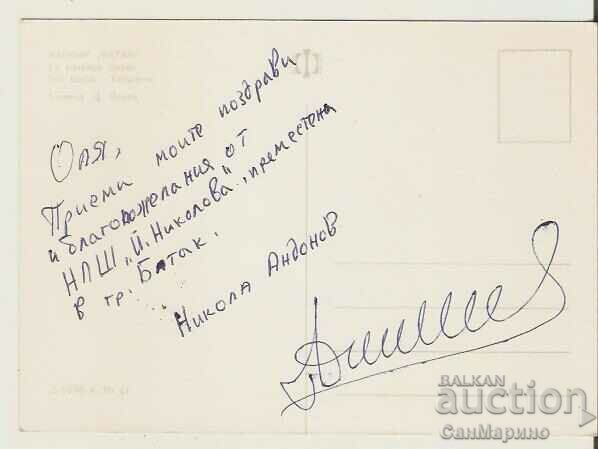 Оля,
Приеми моите поздрави
и благопожелания от
НПШ „Й. Николова", преместена
в гр. Батак.
Никола Андонов
BALKAN
auction
СанМарино